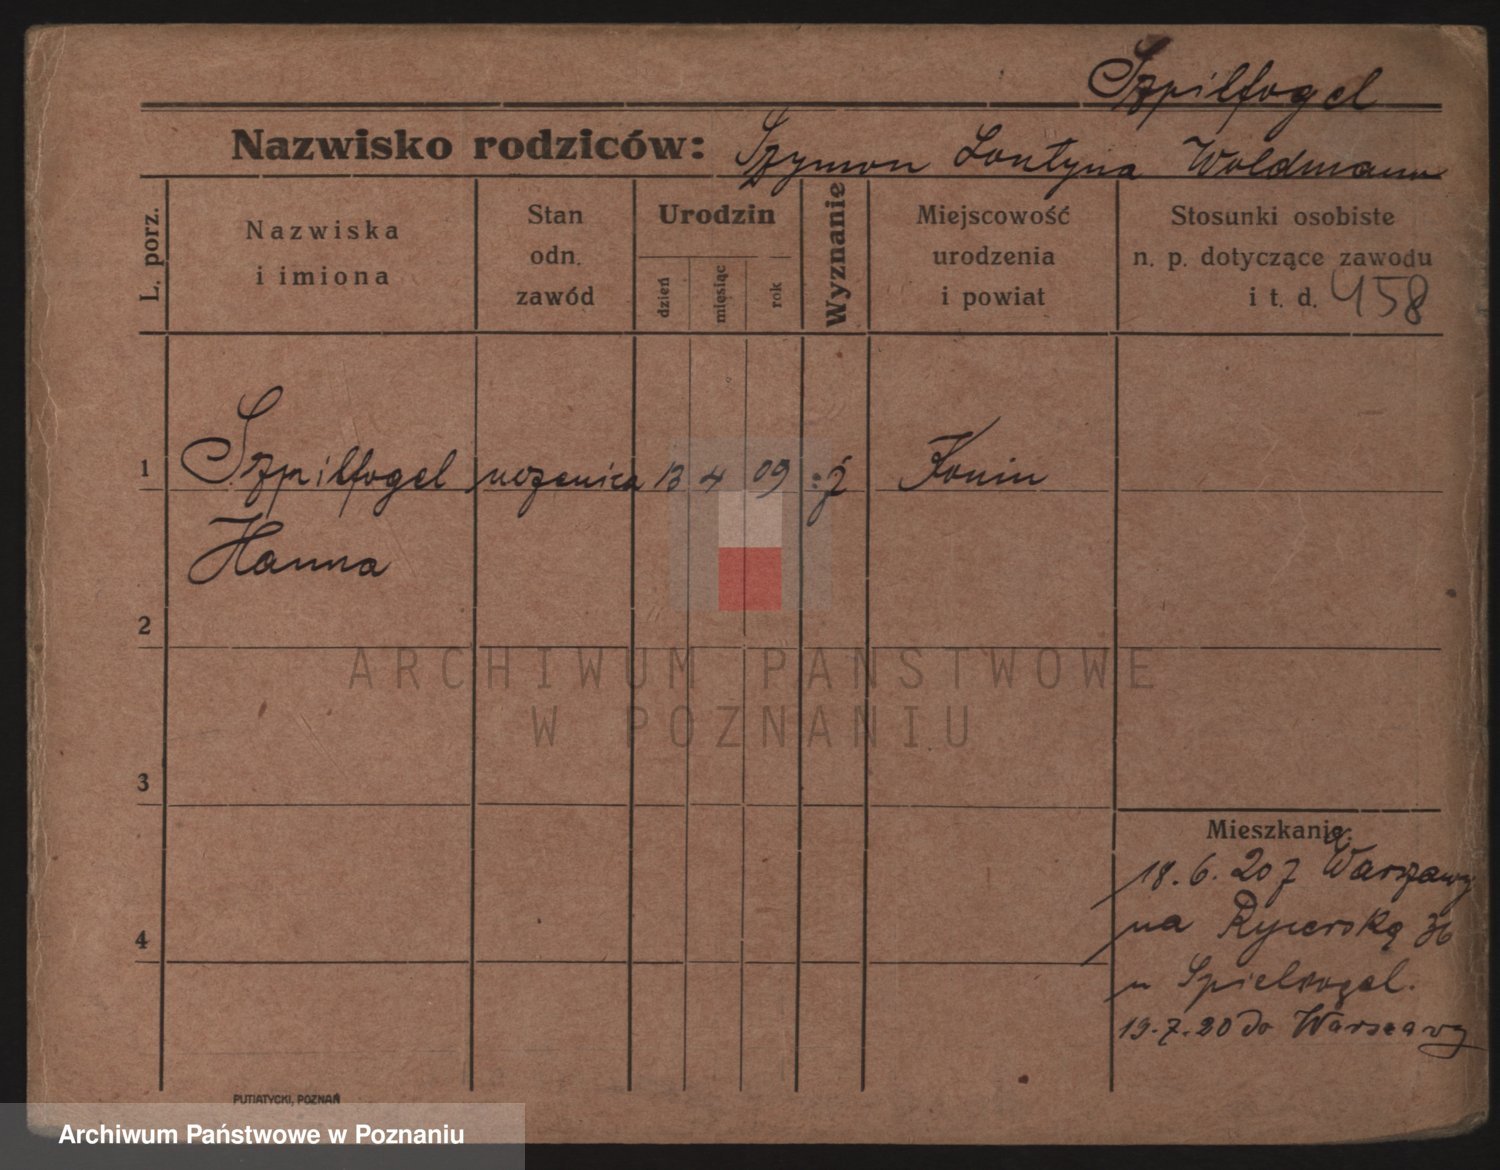 Szpilfogel
Nazwisko rodziców: Szymon Lontyna Woldmann
L. porz.
Nazwiska
i imiona
Stan
odn.
zawód
Urodzin
dzień
miesiąc
rok
Wyznanie
Miejscowość
urodzenia
i powiat
Stosunki osobiste
n. p. dotyczące zawodu
i t. d. 458
1 Szpilfogel uczenica 13 4 09 ż Konin
Hanna
2
ARCHIWUM PAŃSTWOWE
W POZNANIU
3
Mieszkanie:
18. 6. 20 z Warszawy
na Rycerską 36
u Spielvogel.
4
19. 7. 20 do Warszawy
PUTIATYCKI, POZNAŃ
Archiwum Państwowe w Poznaniu